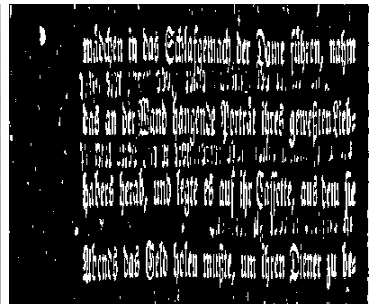 mädchen in das Schlafgemach der Dame führen, nahm
das an der Wand hängende Porträt ihres gewesenen Lieb-
habers herab, und legte es auf ihr Cassette, aus dem sie
Abends das Geld holen mußte, um ihren Diener zu be-